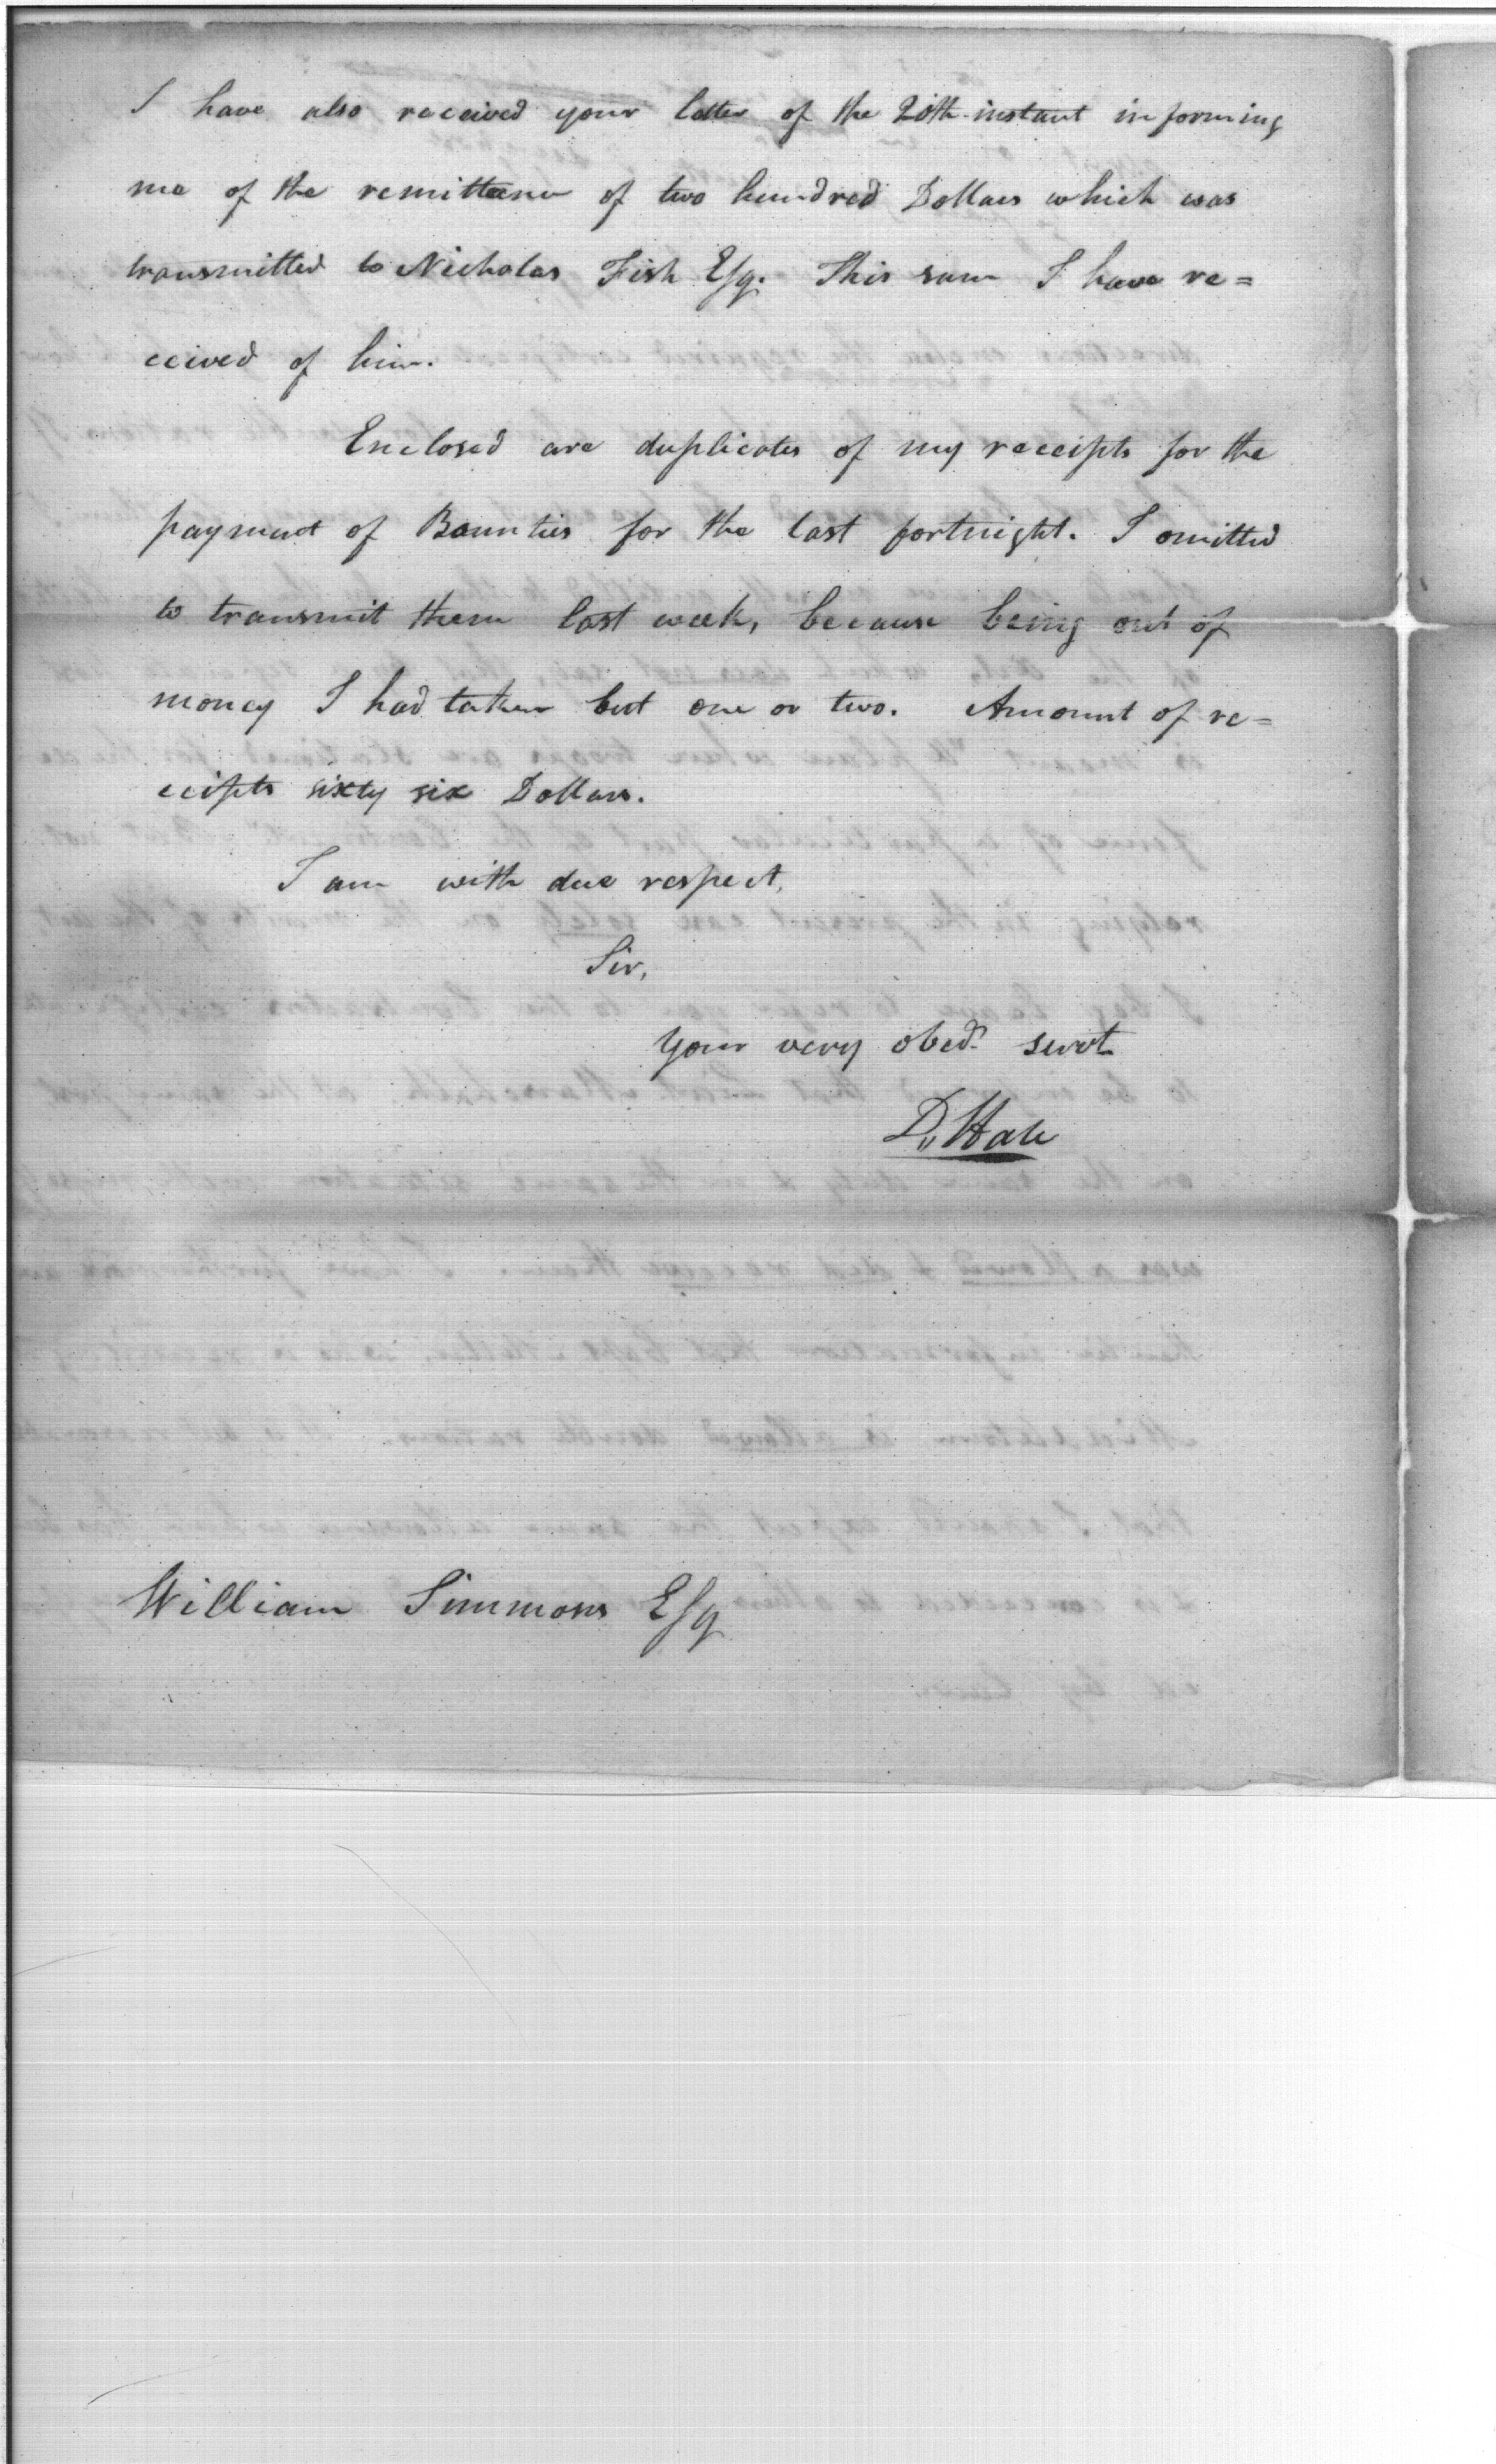 I have also received your letter of the 20th instant informing
me of the remittance of two hundred Dollars which was
transmitted to Nicholas Fish Esq. This sum I have re=
ceived of him.
Enclosed are duplicates of my receipts for the
payment of Bounties for the last fortnight. I omitted
to transmit them last week, because being out of
money I had taken but one or two. Amount of re=
ceipts sixty six Dollars.
I am with due respect,
Sir,
Your very obed. servt
D,, Hale
William Simmons Esq